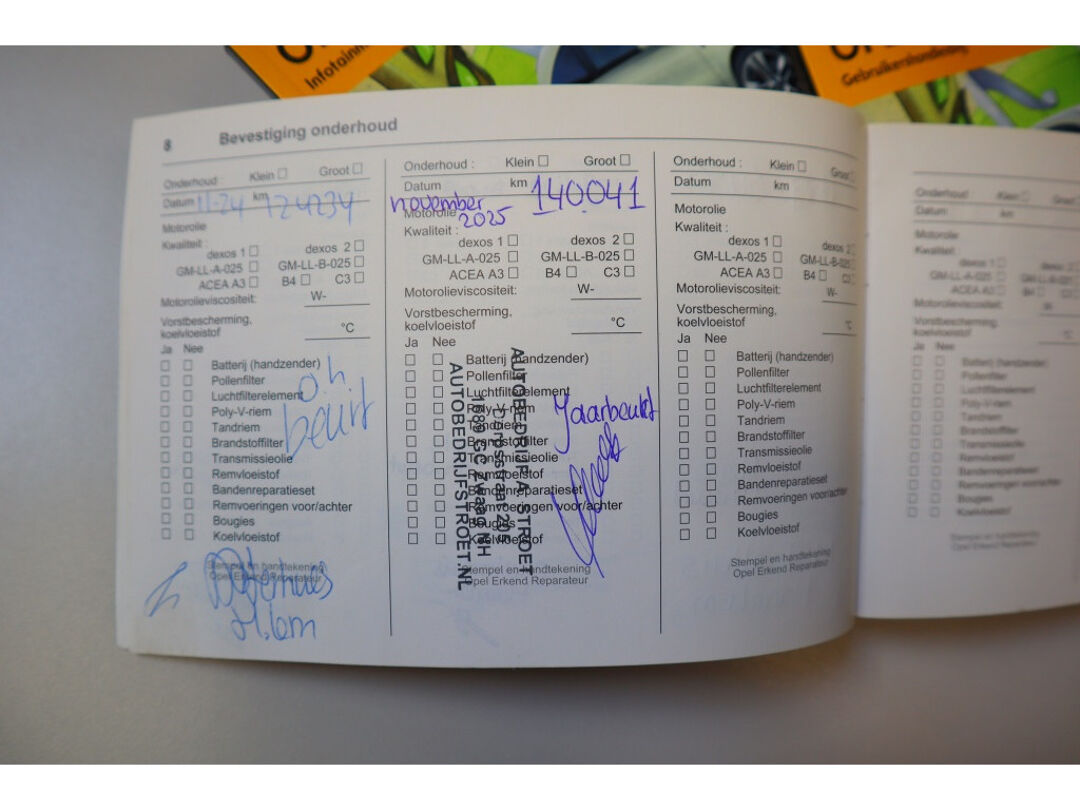 Infotainm
Gebruikershandleiding
8 Bevestiging onderhoud
Onderhoud : Klein ☐ Groot ☐
Datum 11-24 km 124234
Motorolie
Kwaliteit :
dexos 1 ☐ dexos 2 ☐
GM-LL-A-025 ☐ GM-LL-B-025 ☐
ACEA A3 ☐ B4 ☐ C3 ☐
Motorolieviscositeit: W-
Vorstbescherming,
koelvloeistof °C
Ja Nee
☐ ☐ Batterij (handzender)
☐ ☐ Pollenfilter
☐ ☐ Luchtfilterelement
☐ ☐ Poly-V-riem
☐ ☐ Tandriem
☐ ☐ Brandstoffilter
☐ ☐ Transmissieolie
☐ ☐ Remvloeistof
☐ ☐ Bandenreparatieset
☐ ☐ Remvoeringen voor/achter
☐ ☐ Bougies
☐ ☐ Koelvloeistof
o.h.
beurt
Stempel en handtekening
Opel Erkend Reparateur
Onderhoud : Klein ☐ Groot ☐
Datum km 140.041
november
2025
Motorolie
Kwaliteit :
dexos 1 ☐ dexos 2 ☐
GM-LL-A-025 ☐ GM-LL-B-025 ☐
ACEA A3 ☐ B4 ☐ C3 ☐
Motorolieviscositeit: W-
Vorstbescherming,
koelvloeistof °C
Ja Nee
☐ ☐ Batterij (handzender)
☐ ☐ Pollenfilter
☐ ☐ Luchtfilterelement
☐ ☐ Poly-V-riem
☐ ☐ Tandriem
☐ ☐ Brandstoffilter
☐ ☐ Transmissieolie
☐ ☐ Remvloeistof
☐ ☐ Bandenreparatieset
☐ ☐ Remvoeringen voor/achter
☐ ☐ Bougies
☐ ☐ Koelvloeistof
Jaarbeurt
AUTOBEDRIJF A. STROET
Dorpsstraat 205
1689 GC Zwaag NH
AUTOBEDRIJFSTROET.NL
Stempel en handtekening
Opel Erkend Reparateur
Onderhoud : Klein ☐ Groot ☐
Datum km
Motorolie
Kwaliteit :
dexos 1 ☐ dexos 2 ☐
GM-LL-A-025 ☐ GM-LL-B-025 ☐
ACEA A3 ☐ B4 ☐ C3 ☐
Motorolieviscositeit: W-
Vorstbescherming,
koelvloeistof °C
Ja Nee
☐ ☐ Batterij (handzender)
☐ ☐ Pollenfilter
☐ ☐ Luchtfilterelement
☐ ☐ Poly-V-riem
☐ ☐ Tandriem
☐ ☐ Brandstoffilter
☐ ☐ Transmissieolie
☐ ☐ Remvloeistof
☐ ☐ Bandenreparatieset
☐ ☐ Remvoeringen voor/achter
☐ ☐ Bougies
☐ ☐ Koelvloeistof
Stempel en handtekening
Opel Erkend Reparateur
Onderhoud : Klein ☐
Datum km
Motorolie
Kwaliteit :
dexos 1 ☐
GM-LL-A-025 ☐
ACEA A3 ☐ B4 ☐
Motorolieviscositeit: W-
Vorstbescherming,
koelvloeistof °C
Ja Nee
☐ ☐ Batterij (handzender)
☐ ☐ Pollenfilter
☐ ☐ Luchtfilterelement
☐ ☐ Poly-V-riem
☐ ☐ Tandriem
☐ ☐ Brandstoffilter
☐ ☐ Transmissieolie
☐ ☐ Remvloeistof
☐ ☐ Bandenreparatieset
☐ ☐ Remvoeringen voor/achter
☐ ☐ Bougies
☐ ☐ Koelvloeistof
Stempel en handtekening
Opel Erkend Reparateur